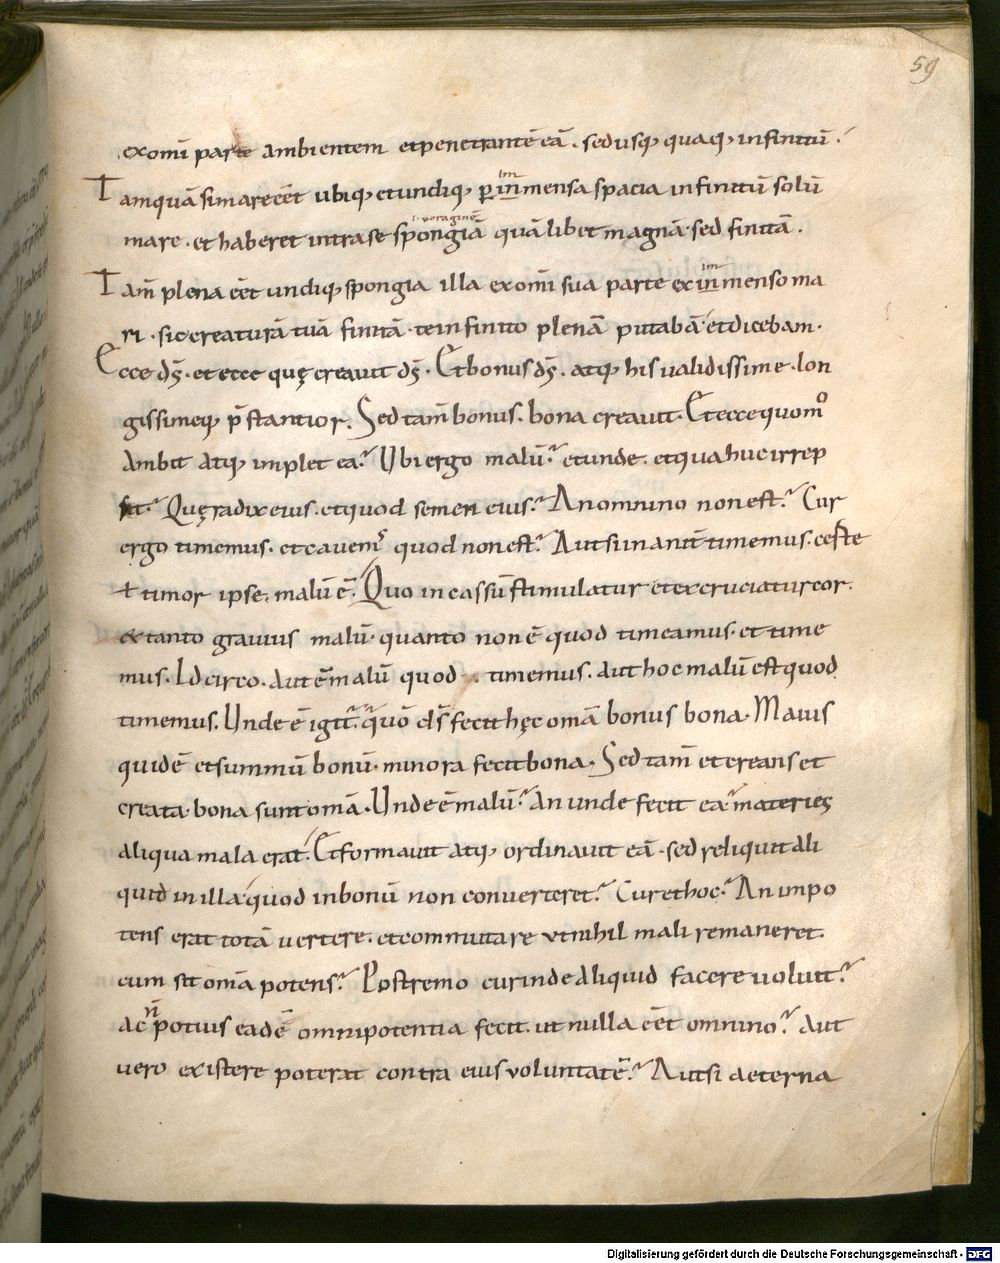 59
exomī parte ambientem et penetrantē eā. sed usq; quaq; infinitū.
Tamquā si mare eēt ubiq; et undiq; ꝑ inmensa spacia infinitū solū
im
mare. et haberet intra se spongiā quālibet magnā. sed finitā.
i. voraginē
Tam̄ plena eēt undiq; spongia illa ex omī sua parte ex inmenso ma
im
ri. sic creaturā tuā finitā. te infinito plenā putabā et dicebam.
Ecce dꝰs̄. et ecce quę creauit ds̄. Et bonus ds̄. atq; his ualidissime. lon
gissimeq; p̄stantior. Sed tam̄ bonus. bona creauit. Et ecce quom̊
ambit atq; implet ea? Ubi ergo malū? et unde. et qua huc irrep
sit? Quę radix eius. et quod semen eius? An omnino non est? Cur
ergo timemus. et cauem᷒ quod non est? Aut si inanit̄ timemus. certe
ł timor ipse. malū ē. Quo in cassū stimulatur et excruciatur cor.
ex tanto grauius malū. quanto non ē quod timeamus. et time
mus. Idcirco. aut ē malū quod timemus. aut hoc malū est quod
timemus. Unde ē igit̄? quō ds̄ fecit hęc om̄a bonus bona. Maius
quidē et summū bonū. minora fecit bona. Sed tam̄ et creans et
creata. bona sunt om̄a. Unde ē malū? An unde fecit ea? materies
aliqua mala erat. Et formauit atq; ordinauit eā. sed reliquit ali
quid in illa. quod in bonū non conuerteret? Cur et hoc? An inpo
tens erat totā uertere. et commutare ut nihil mali remaneret.
cum sit om̄a potens? Postremo cur inde aliquid facere uoluit?
ac n̄ potius eadē omnipotentia fecit. ut nulla eēt omnino? Aut
uero existere poterat contra eius voluntatē? Aut si aeterna
Digitalisierung gefördert durch die Deutsche Forschungsgemeinschaft - DFG